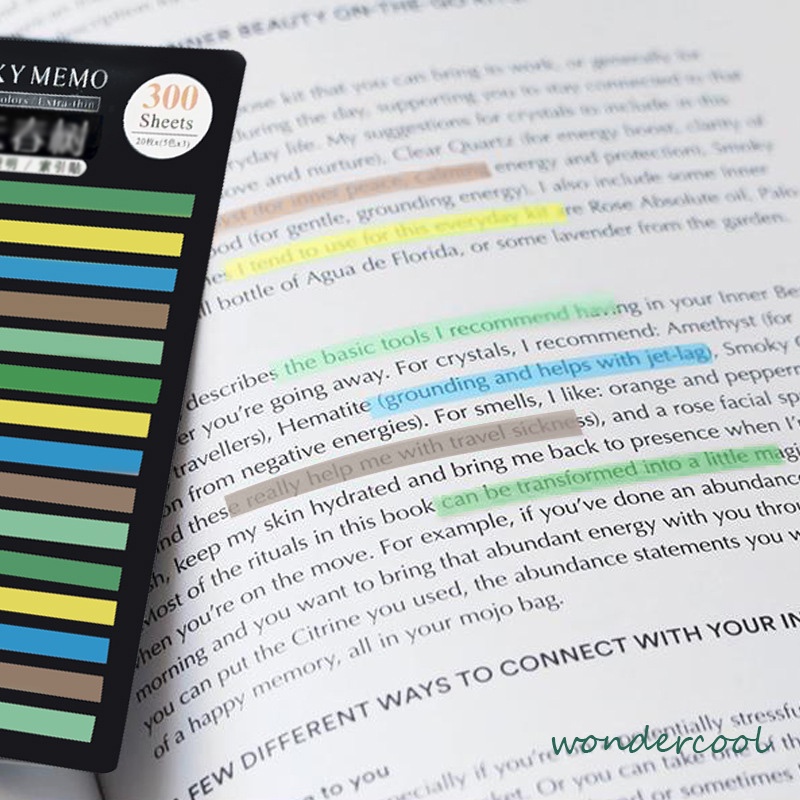 INNER BEAUTY ON-THE-GO
KY MEMO
colors / Extra-thin
300
Sheets
20枚x(5色x3)
明 / 索引貼
ose kit that you can bring to work, or generally for
during the day, supporting you to stay connected to that
ryday life. My suggestions for crystals to include in this
love and nurture), Clear Quartz (for energy boost, clarity of
yst (for inner peace, calmness, energy and protection), Smoky
ood (for gentle, grounding energy). I also include some Inner
I tend to use for this everyday kit are Rose Absolute oil, Palo
ll bottle of Agua de Florida, or some lavender from the garden.
describes the basic tools I recommend having in your Inner Be
er you're going away. For crystals, I recommend: Amethyst (for
travellers), Hematite (grounding and helps with jet-lag), Smoky
on from negative energies). For smells, I like: orange and pepperm
nd these really help me with travel sickness), and a rose facial sp
h, keep my skin hydrated and bring me back to presence when I'
Most of the rituals in this book can be transformed into a little magi
hen you're on the move. For example, if you've done an abundanc
morning and you want to bring that abundant energy with you throu
you can put the Citrine you used, the abundance statements you w
of a happy memory, all in your mojo bag.
A FEW DIFFERENT WAYS TO CONNECT WITH YOUR IN
especially if you're potentially stressfu
to you
market. Or you can take one of th
d or sometimes
wondercool